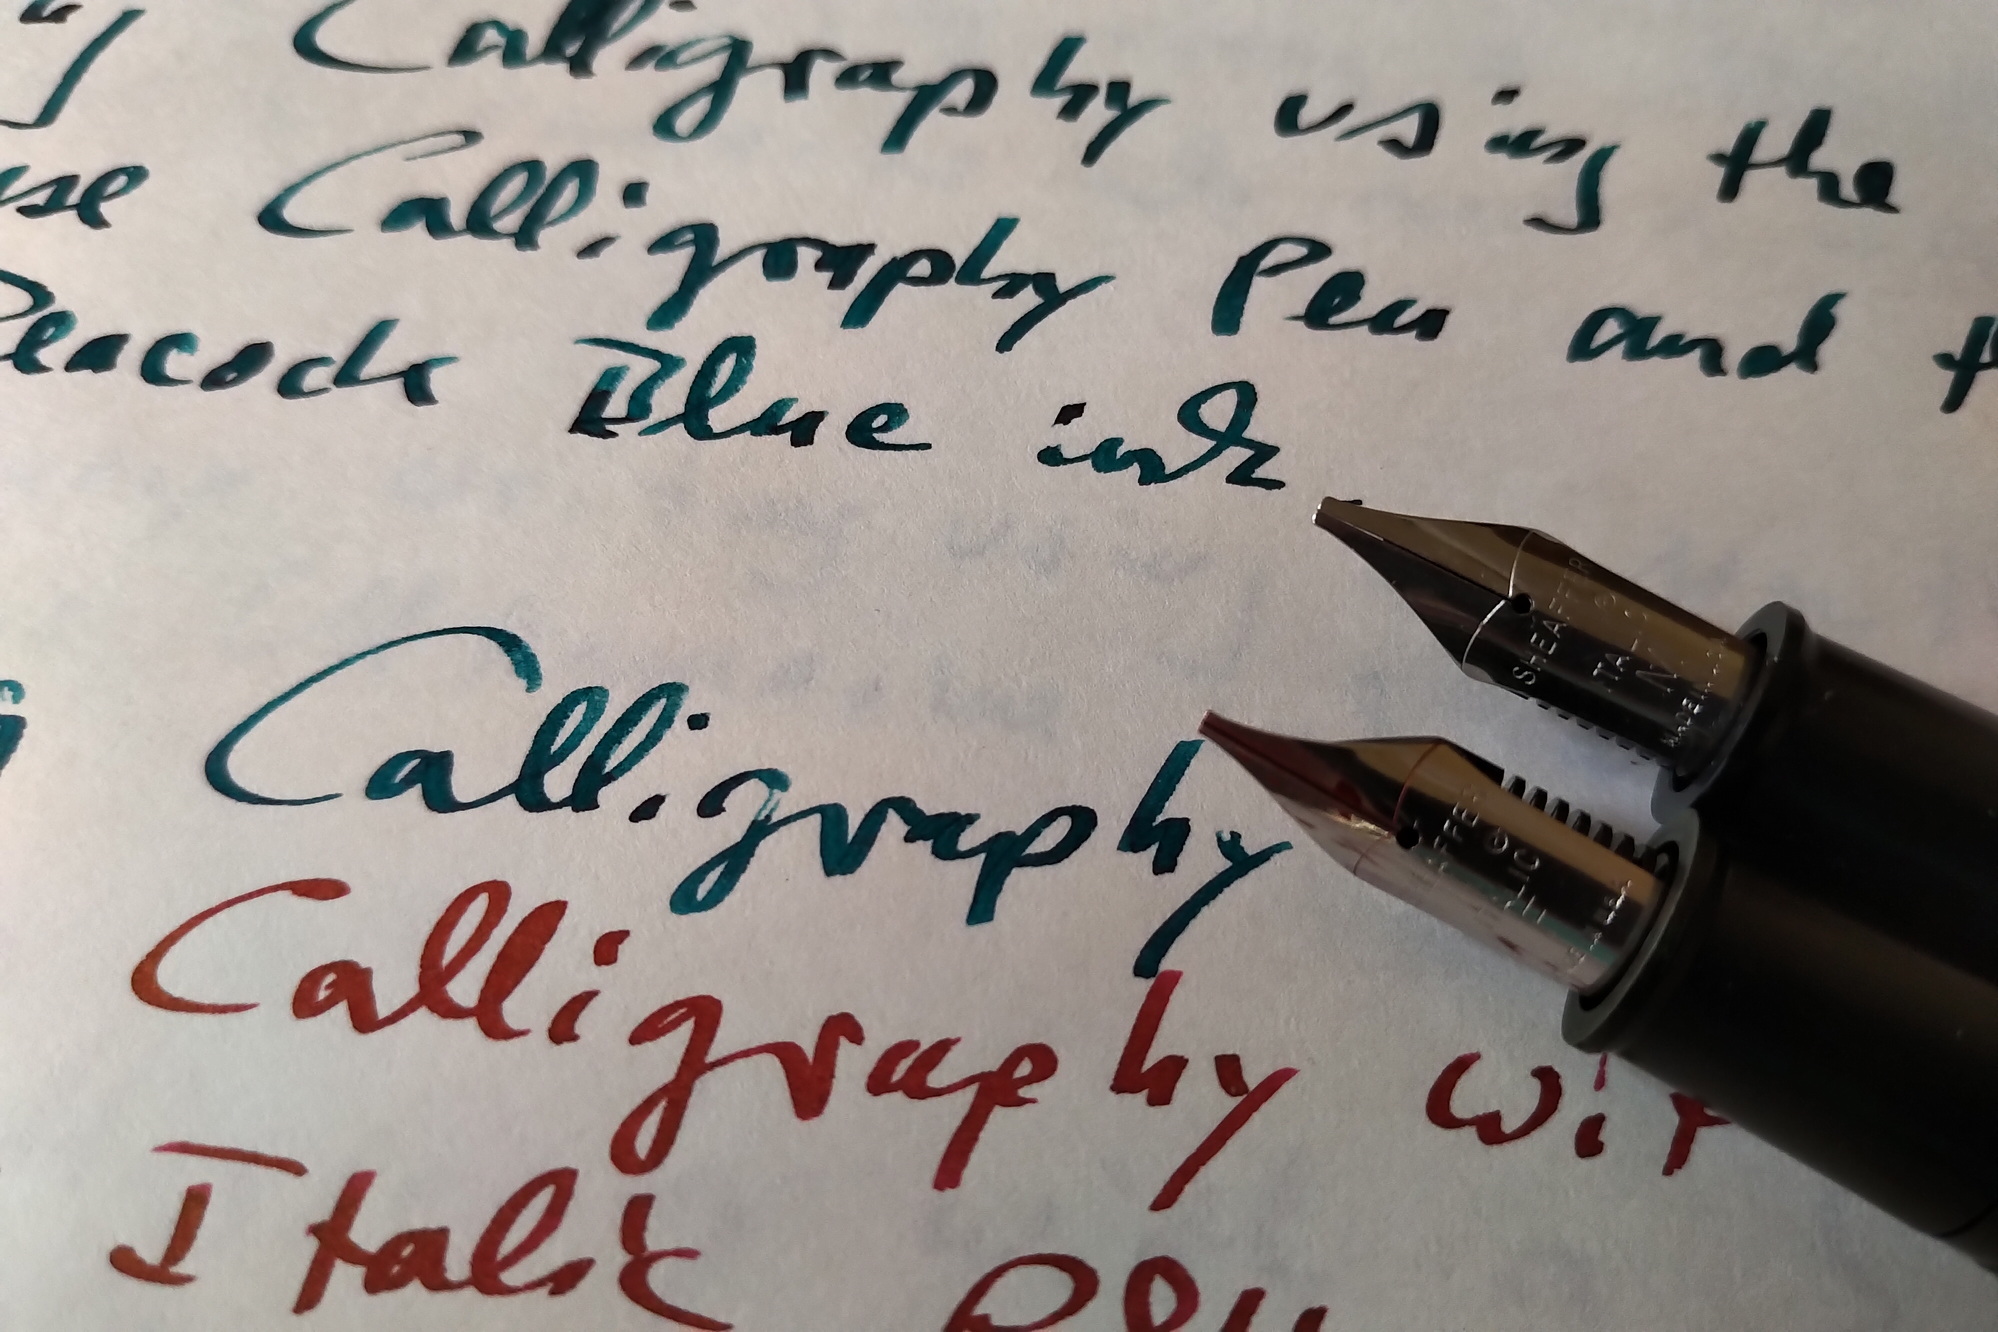 Calligraphy using the
use Calligraphy Pen and
Peacock Blue ink
Calligraphy
Calligraphy wit
Italic Pen
SHEAFFER
ITALIC
MADE